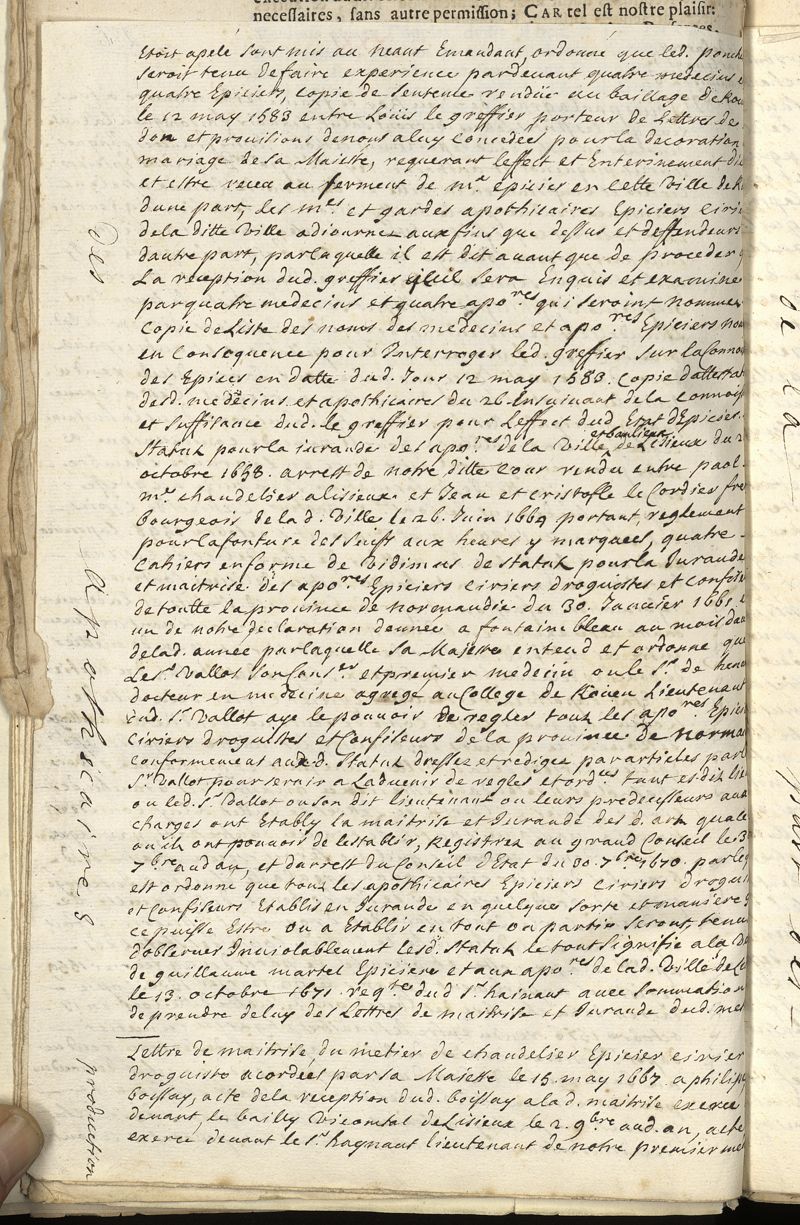 necessaires, sans autre permission; CAR tel est nostre plaisir:
Etoit apelé sont mis au neant Emandant, ordonné que led. ponch
seroit tenu de faire experience pardevant quatre medecins e
quatre Epiciers, copie de sentence rendüe au baillage de Rou
le 12 may 1583 entre Loüis le greffier porteur de Lettres de
don et provisions de nous a luy concedées pour la decoration
mariage de sa Maieste, requerant leffect et Enterinement di
et estre receu au serment de m.r epicier en cette ville de R
dune part, les m.es et gardes apothicaires Epiciers Cirie
de la ditte ville adiournez aux fins que dessus et deffendeurs
dautre part, par laquelle il est dit auant que de proceder
La reception dud. greffier quil sera Enquis et examiné
par quatre medecins et quatre apo.res qui seroint nommez
copie de Liste des noms des medecins et apo.res Epiciers nom
en consequence pour Interroger led. greffier sur la Connoi
des Epices en datte dud. Jour 12 may 1583. copie dattestat
desd. medecins et apothicaires du 26. Ensuiuant de la connoiss
et suffisance dud. le greffier pour leffect dud Etat dEpicier.
Statuz pour la iurande des apo.res de la ville et banlieue de Lisieux du 2
octobre 1658. arrest de notre ditte Cour rendu entre paol.
m.re chandelier a lisieux et Jean et cristofle le Cordier fre
bourgeois de lad. ville le 26. Juin 1669 portant, reglement
pour la fonture des suifs aux heures y marquées, quatre
Cahiers en forme de vidimus de statuz pour la Jurande
et maitrise des apo.res Epiciers Ciriers droguistes et confise
de toutte la prouince de normandie du 30. Januier 1661 e
un de notre declaration donnée a fontainebleau au mois dao
de lad. année par laquelle sa Majesté entend et ordonne que
Le s.r Vallot son Cons.er et premier medecin ou le s.r de hena
docteur en medecine agregé au College de Roüen Lieutenant
dud. s.r Vallot aye le pouuoir de regler tous les apo.res Epici
Ciriers droguistes et Confiseurs de la prouince de norman
conformement aud. Statuz dressez et redigez par articles par l
s.r Vallot pour seruir a Laduenir de regles et ord.ces tant es dits lie
ou led. s.r Vallot ou son dit lieutenant ou leurs predecesseurs aux
charges ont Etably la maitrise et Jurande des d. arts que la
ou ils ont pouuoir de lestablir, Registrez au grand Conseil le 3
7.bre aud an, et darrest du Conseil dEtat du 30. 7.bre 1670. par leq
est ordonné que tous les apothicaires Epiciers Ciriers drogui
et Confiseurs Etablis en Jurande en quelque sorte et maniere q
ce puisse Estre ou a Etablir en tout ou partie seront, tenu
dobseruer Inuiolablement lesd. Statuz le tout signifié a la
de guillaume martel Epicier et aux apo.res de lad. Ville de Li
le 13. octobre 1671. req.te dud s.r hainaut auec sommation
de prendre de luy des Lettres de maitrise et Jurande dud. met
Lettre de maitrise du metier de chandelier Epicier cirier
droguiste acordées par sa Maiesté le 15. may 1667. a philip
boissay, acte de la reception dud. boissay a lad. maitrise exercé
deuant, le bailly Vicomtal de Lisieux le 2. 9.bre aud. an, acte
exercé deuant le s.r hagnaut lieutenant de notre premier med
Des
Apothicaires
production
de la